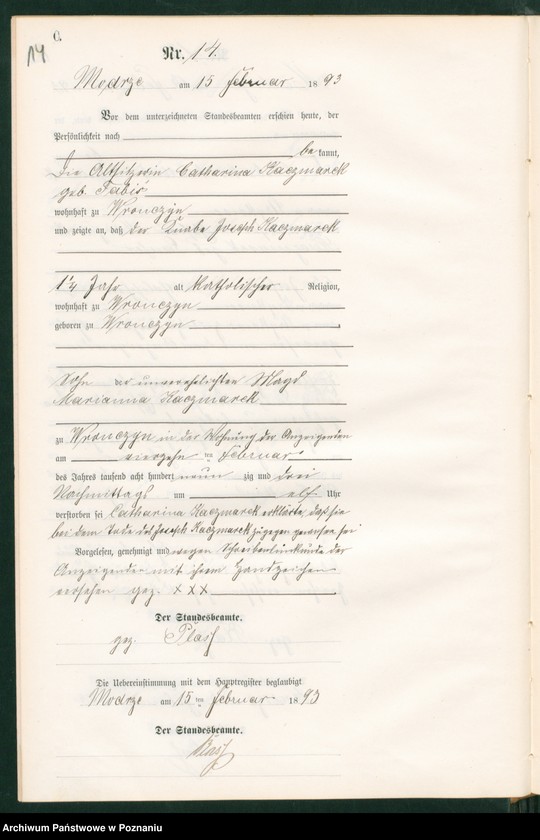 C.
14
Nr. 14.
Modrze am 15 Februar 1893
Vor dem unterzeichneten Standesbeamten erschien heute, der
Persönlichkeit nach
bekannt,
Die Altsitzerin Catharina Kaczmarek
geb. Fabis
wohnhaft zu Wronczyn
und zeigte an, daß der Knabe Joseph Kaczmarek
1¼ Jahr alt katholischer Religion,
wohnhaft zu Wronczyn
geboren zu Wronczyn
Sohn der unverehelichten Magd
Marianna Kaczmarek
zu Wronczyn in der Wohnung der Anzeigenden
am vierzehn ten Februar
des Jahres tausend acht hundert neun zig und drei
Nachmittags um elf Uhr
verstorben sei Catharina Kaczmarek erklärte, daß sie
bei dem Tode des Joseph Kaczmarek zugegen gewesen sei
Vorgelesen, genehmigt und wegen Schreibensunkunde der
Anzeigender mit ihrem Handzeichen
versehen gez. XXX
Der Standesbeamte.
gez.
Die Uebereinstimmung mit dem Hauptregister beglaubigt
Modrze am 15 ten Februar 1893
Der Standesbeamte.
Archiwum Państwowe w Poznaniu